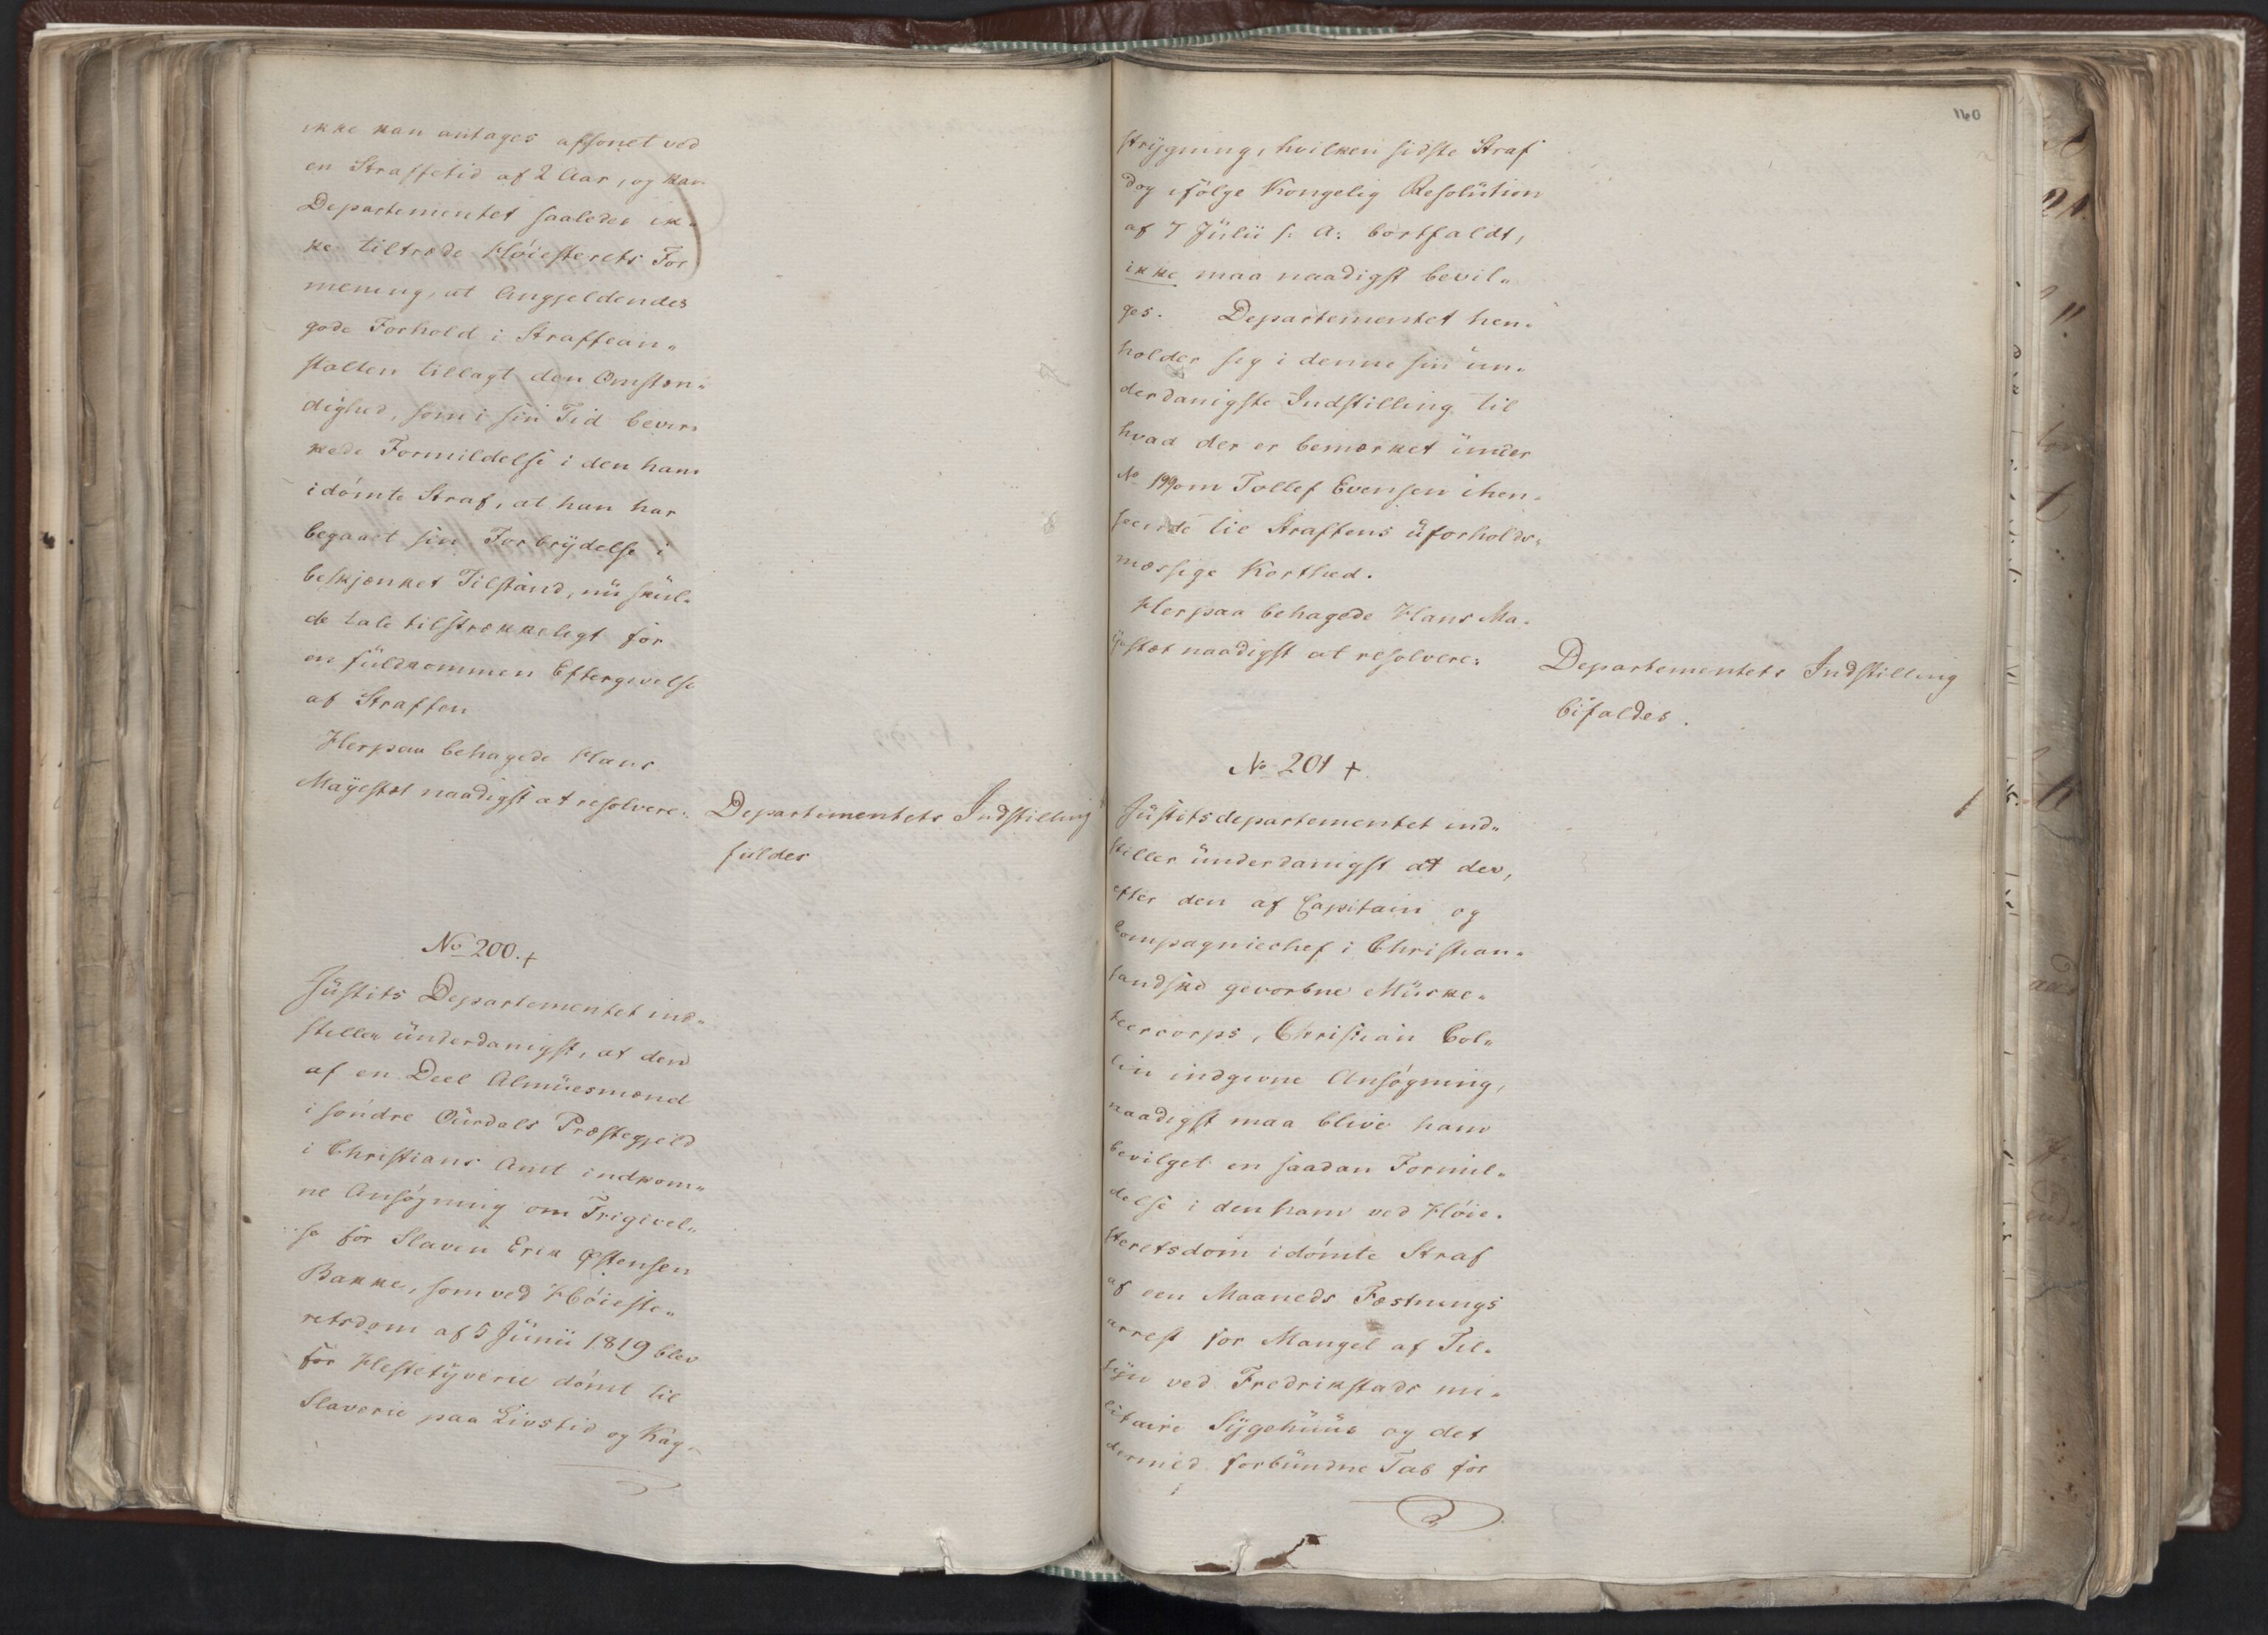 ikke kan antages afsonet ved
en Straffetid af 2 Aar, og kan
Departementet saaledes ik„
ke tiltræde Høiesterets For
mening, at Angjeldendes
gode Forhold i Straffean„
stalten tillagt den Omstæn„
dighed, som i sin Tid bevir„
kede Formildelse i den ham
idømte Straf, at han har
begaaet sin Forbrydelse i
beskjænket Tilstand, nu skul„
de tale tilstrækkeligt for
en fuldkommen Eftergivelse
af Straffen
Herpaa behagede Hans
Mayestæt naadigst at resolvere: Departementets Indstilling
fuldes
No 200. +
Justits Departementet ind„
stiller underdanigst, at den
af en Deel Almuesmænd
i søndre Ourdals Præstegjeld
i Christians Amt indkom„
ne Ansøgning om Frigivel„
se for Slaven Erik Østensen
Bakke, som ved Høieste„
retsdom af 5 Junii 1819 blev
for Hestetyverie dømt til
Slaverie paa Livstid og Kag„
160
strygning, hvilken sidste Straf
dog ifølge Kongelig Resolution
af 7 Julii s: A: bortfaldt,
ikke maa naadigst bevil„
ges. Departementet hen„
holder sig i denne sin un„
derdanigste Indstilling til
hvad der er bemærket under
No 199 om Tollef Evensen ihen„
seende til Straffens uforholds„
mæssige Korthed.
Herpaa behagede Hans Ma„
jestæt naadigst at resolvere: Departementets Indstilling
bifaldes.
No 201 +.
Justitsdepartementet ind„
stiller underdanigst at der,
efter den af Capitain og
Compagniechef i Christian„
sandske gevorbne Muske„
teercorps, Christian Col„
lin indgivne Ansøgning,
naadigst maa blive ham
bevilget en saadan Formil„
delse i den ham ved Høie„
steretsdom idømte Straf
af een Maaneds Fæstnings
arrest for Mangel af Til„
syn ved Fredrikstads mi„
litaire Sygehuus og det
dermed forbundne Tab for